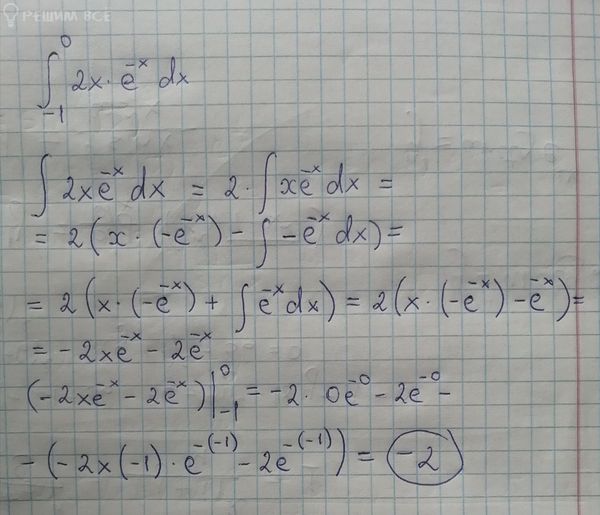 РЕШИМ ВСЕ
∫₋₁⁰ 2x · e⁻ˣ dx
∫ 2xe⁻ˣ dx = 2 · ∫ xe⁻ˣ dx =
= 2(x · (-e⁻ˣ) - ∫ -e⁻ˣ dx) =
= 2(x · (-e⁻ˣ) + ∫ e⁻ˣ dx) = 2(x · (-e⁻ˣ) - e⁻ˣ) =
= -2xe⁻ˣ - 2e⁻ˣ
(-2xe⁻ˣ - 2e⁻ˣ)|₋₁⁰ = -2 · 0e⁻⁰ - 2e⁻⁰ -
-(-2x(-1) · e⁻⁽⁻¹⁾ - 2e⁻⁽⁻¹⁾) = -2